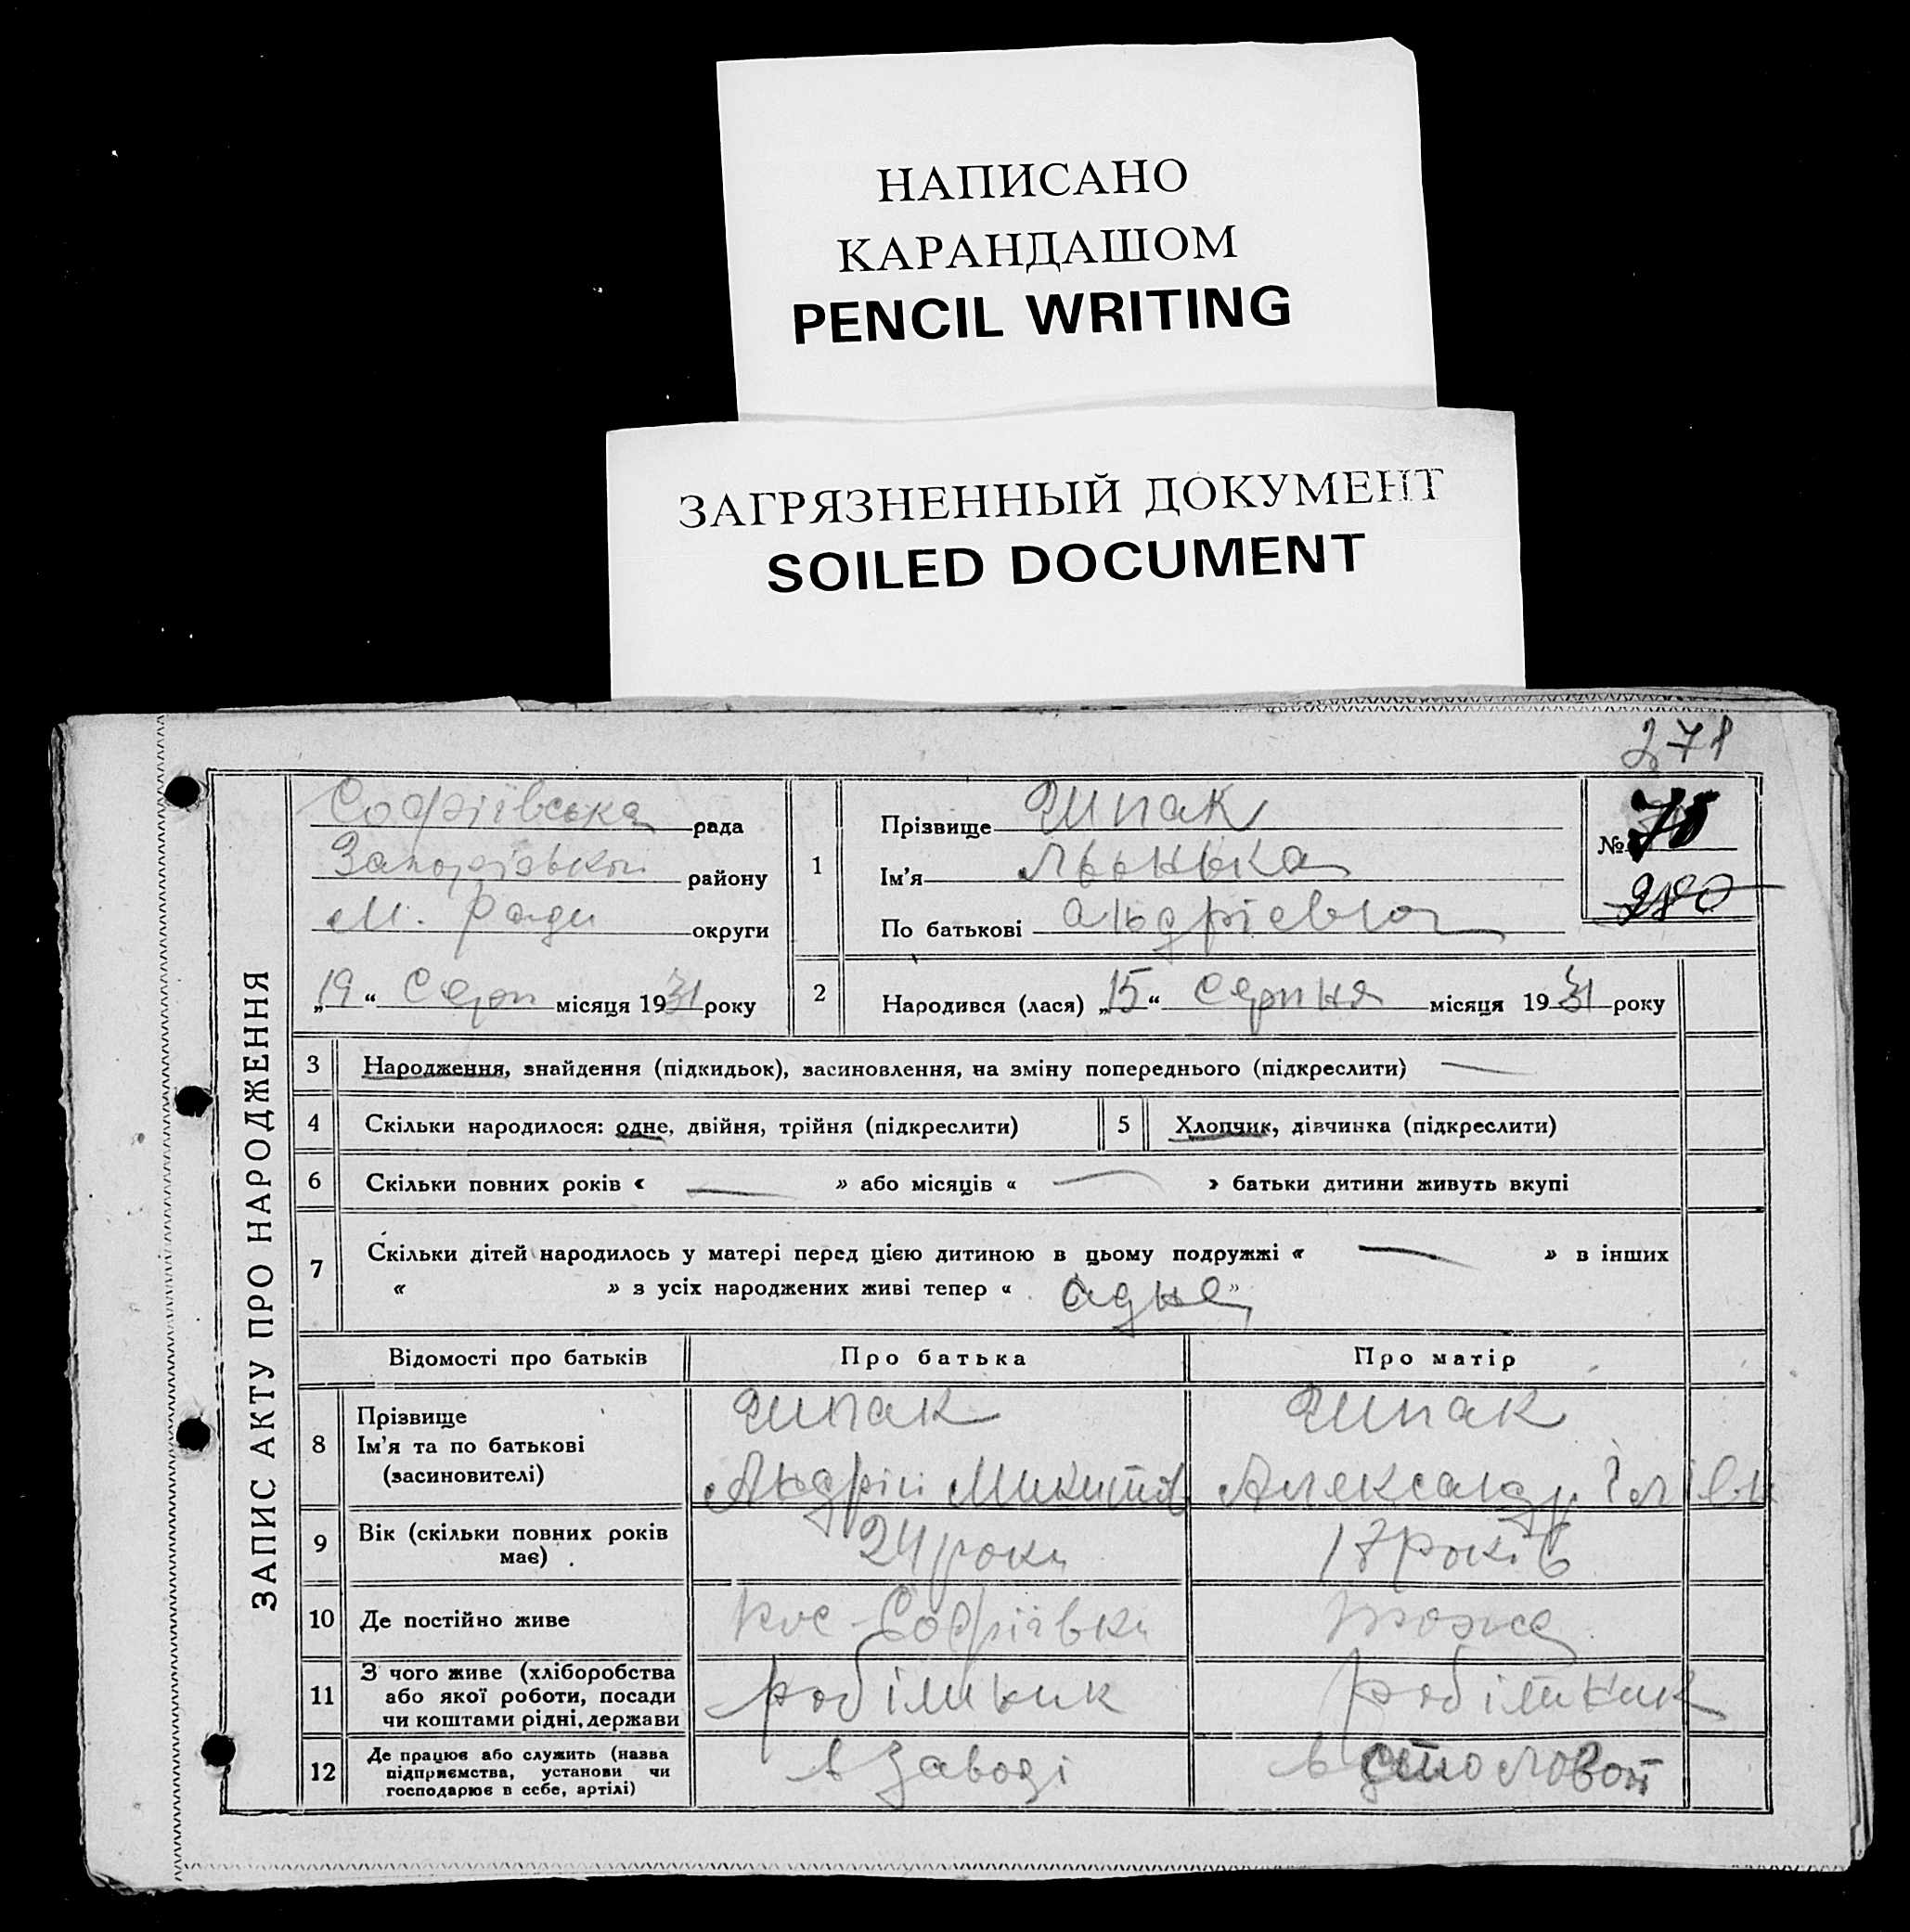 НАПИСАНО
КАРАНДАШОМ
PENCIL WRITING
ЗАГРЯЗНЕННЫЙ ДОКУМЕНТ
SOILED DOCUMENT
271
ЗАПИС АКТУ ПРО НАРОДЖЕННЯ
Софіївська рада
Запорізької району
М. Ради округи
„19“ Серп місяця 1931 року
1
Прізвище Шпак
Ім'я
По батькові Андрієвна
№ 78
280
2 Народився (лася) „15“ Серпня місяця 1931 року
3 Народження, знайдення (підкидьок), засиновлення, на зміну попереднього (підкреслити) —
4 Скільки народилося: одне, двійня, трійня (підкреслити) 5 Хлопчик, дівчинка (підкреслити)
6 Скільки повних років « — » або місяців « — » батьки дитини живуть вкупі
7 Скільки дітей народилось у матері перед цією дитиною в цьому подружжі « — » в інших
« » з усіх народжених живі тепер « одна »
Відомості про батьків Про батька Про матір
8 Прізвище
Ім'я та по батькові
(засиновителі)
Шпак
Андрій Микитов
Шпак
Александр Ілівн
9 Вік (скільки повних років
має)
24 роки 17 років
10 Де постійно живе Кос-Софіївки тоже
11 З чого живе (хліборобства
або якої роботи, посади
чи коштами рідні, держави
робітник робітник
12 Де працює або служить (назва
підприємства, установи чи
господарює в себе, артілі)
в заводі в столовой